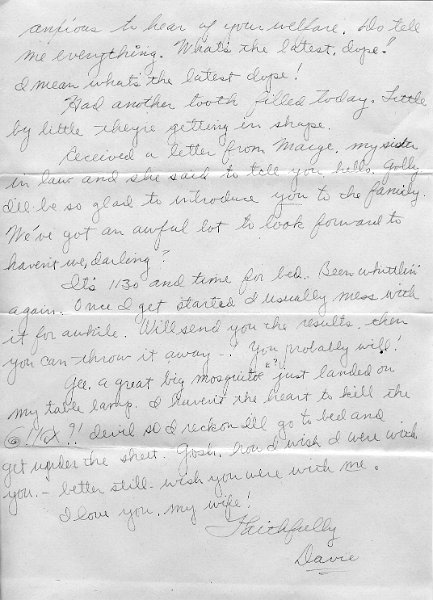 anxious to hear of your welfare. Do tell
me everything. What's the latest, dope!
I mean what's the latest dope!
Had another tooth filled today. Little
by little they're getting in shape.
Received a letter from Marge, my sister
in law and she said to tell you hello. Golly
I'll be so glad to introduce you to the family.
We've got an awful lot to look forward to
haven't we, darling?
It's 1130 and time for bed. Been whittlin'
again. Once I get started I usually mess with
it for awhile. Will send you the results, then
you can throw it away -. You probably will!
Gee, a great big mosquito "?" just landed on
my table lamp. I haven't the heart to kill the
devil so I reckon I'll go to bed and
get under the sheet. Gosh, how I wish I were with
you, - better still - wish you were with me.
I love you, my wife!
Faithfully
Dave